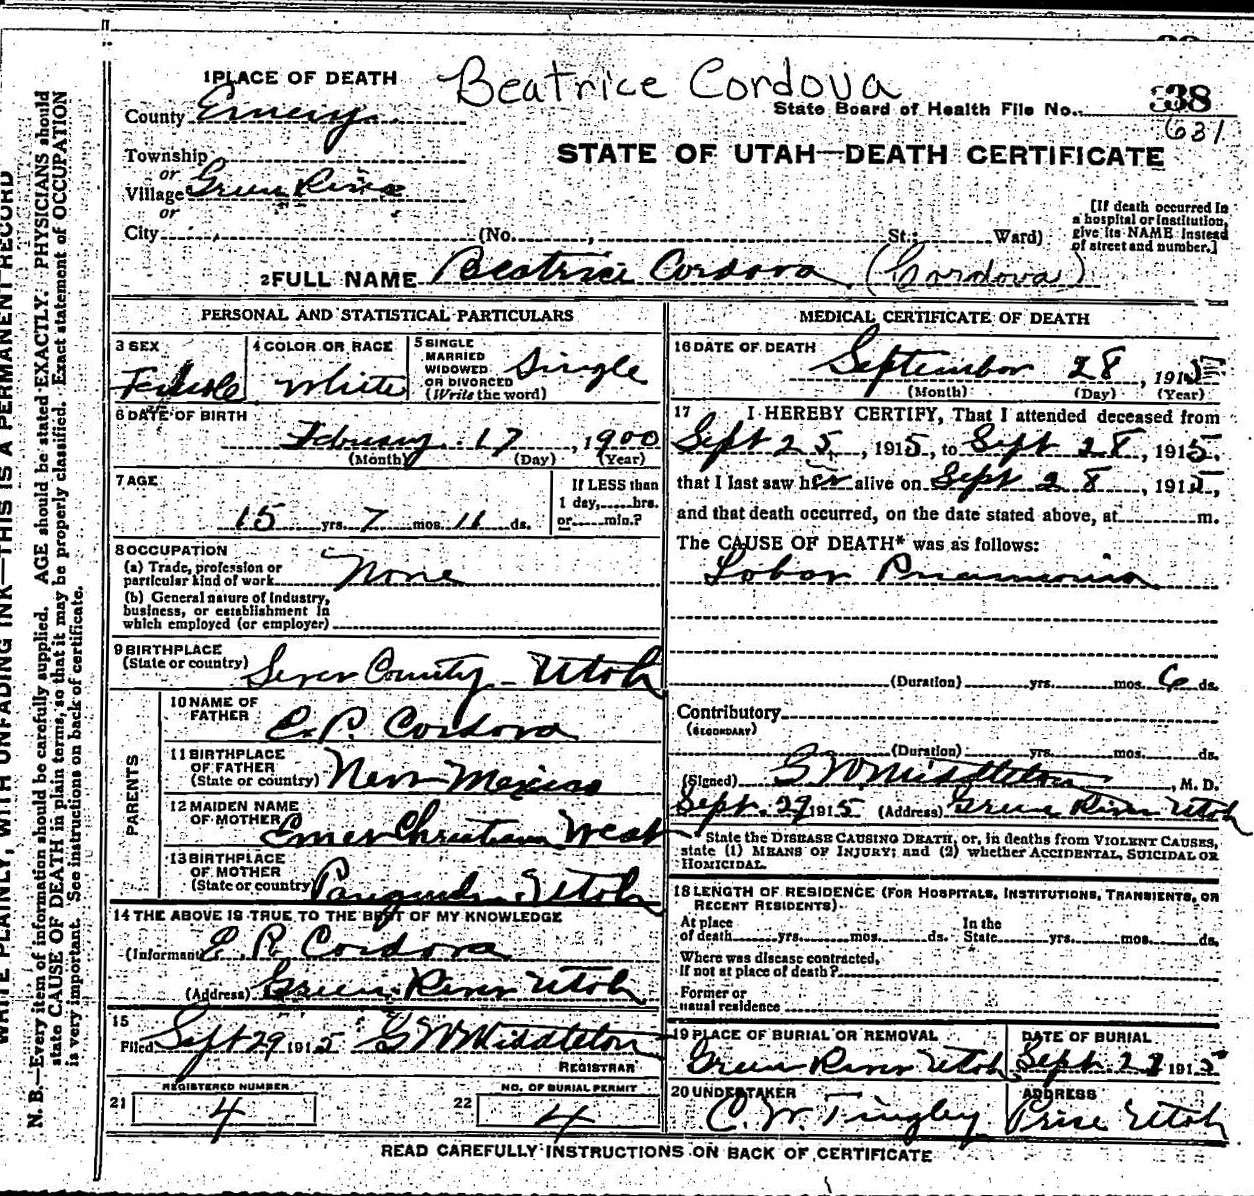 Beatrice Cordova
1 PLACE OF DEATH
County Emery
State Board of Health File No. 338
631
Township
or
Village Green River
or
City (No. , St.; Ward)
STATE OF UTAH—DEATH CERTIFICATE
[If death occurred in
a hospital or institution,
give its NAME instead
of street and number.]
2 FULL NAME Beatrice Cordova (Cordova)
PERSONAL AND STATISTICAL PARTICULARS
3 SEX Female
4 COLOR OR RACE White
5 SINGLE
MARRIED
WIDOWED
OR DIVORCED
(Write the word) Single
6 DATE OF BIRTH
February 17, 1900
(Month) (Day) (Year)
7 AGE
15 yrs. 7 mos. 11 ds.
If LESS than
1 day, hrs.
or min.?
8 OCCUPATION
(a) Trade, profession or
particular kind of work None
(b) General nature of industry,
business, or establishment in
which employed (or employer)
9 BIRTHPLACE
(State or country) Sevier County - Utah
PARENTS
10 NAME OF
FATHER E. P. Cordova
11 BIRTHPLACE
OF FATHER
(State or country) New Mexico
12 MAIDEN NAME
OF MOTHER West
13 BIRTHPLACE
OF MOTHER
(State or country) Utah
14 THE ABOVE IS TRUE TO THE BEST OF MY KNOWLEDGE
(Informant E. P. Cordova
(Address) Green River Utah
15
Filed Sept 29 1915 G W Middleton
REGISTRAR
REGISTERED NUMBER
21 4
NO. OF BURIAL PERMIT
22 4
MEDICAL CERTIFICATE OF DEATH
16 DATE OF DEATH
September 28, 1915
(Month) (Day) (Year)
17 I HEREBY CERTIFY, That I attended deceased from
Sept 25, 1915, to Sept 28, 1915,
that I last saw her alive on Sept 28, 1915,
and that death occurred, on the date stated above, at m.
The CAUSE OF DEATH* was as follows:
Lobar Pneumonia
(Duration) yrs. mos. 6 ds.
Contributory
(SECONDARY)
(Duration) yrs. mos. ds.
(Signed) G W Middleton, M. D.
Sept. 29 1915 (Address) Green River Utah
State the DISEASE CAUSING DEATH, or, in deaths from VIOLENT CAUSES,
state (1) MEANS OF INJURY; and (2) whether ACCIDENTAL, SUICIDAL OR
HOMICIDAL.
18 LENGTH OF RESIDENCE (FOR HOSPITALS, INSTITUTIONS, TRANSIENTS, OR
RECENT RESIDENTS).
At place
of death yrs. mos. ds.
In the
State yrs. mos. ds.
Where was disease contracted,
if not at place of death?
Former or
usual residence
19 PLACE OF BURIAL OR REMOVAL
Green River Utah
DATE OF BURIAL
Sept. 1915
20 UNDERTAKER
C. W. Tingley
ADDRESS
Price Utah
READ CAREFULLY INSTRUCTIONS ON BACK OF CERTIFICATE
WRITE PLAINLY, WITH UNFADING INK—THIS IS A PERMANENT RECORD
N. B.—Every item of information should be carefully supplied. AGE should be stated EXACTLY. PHYSICIANS should
state CAUSE OF DEATH in plain terms, so that it may be properly classified. Exact statement of OCCUPATION
is very important. See instructions on back of certificate.